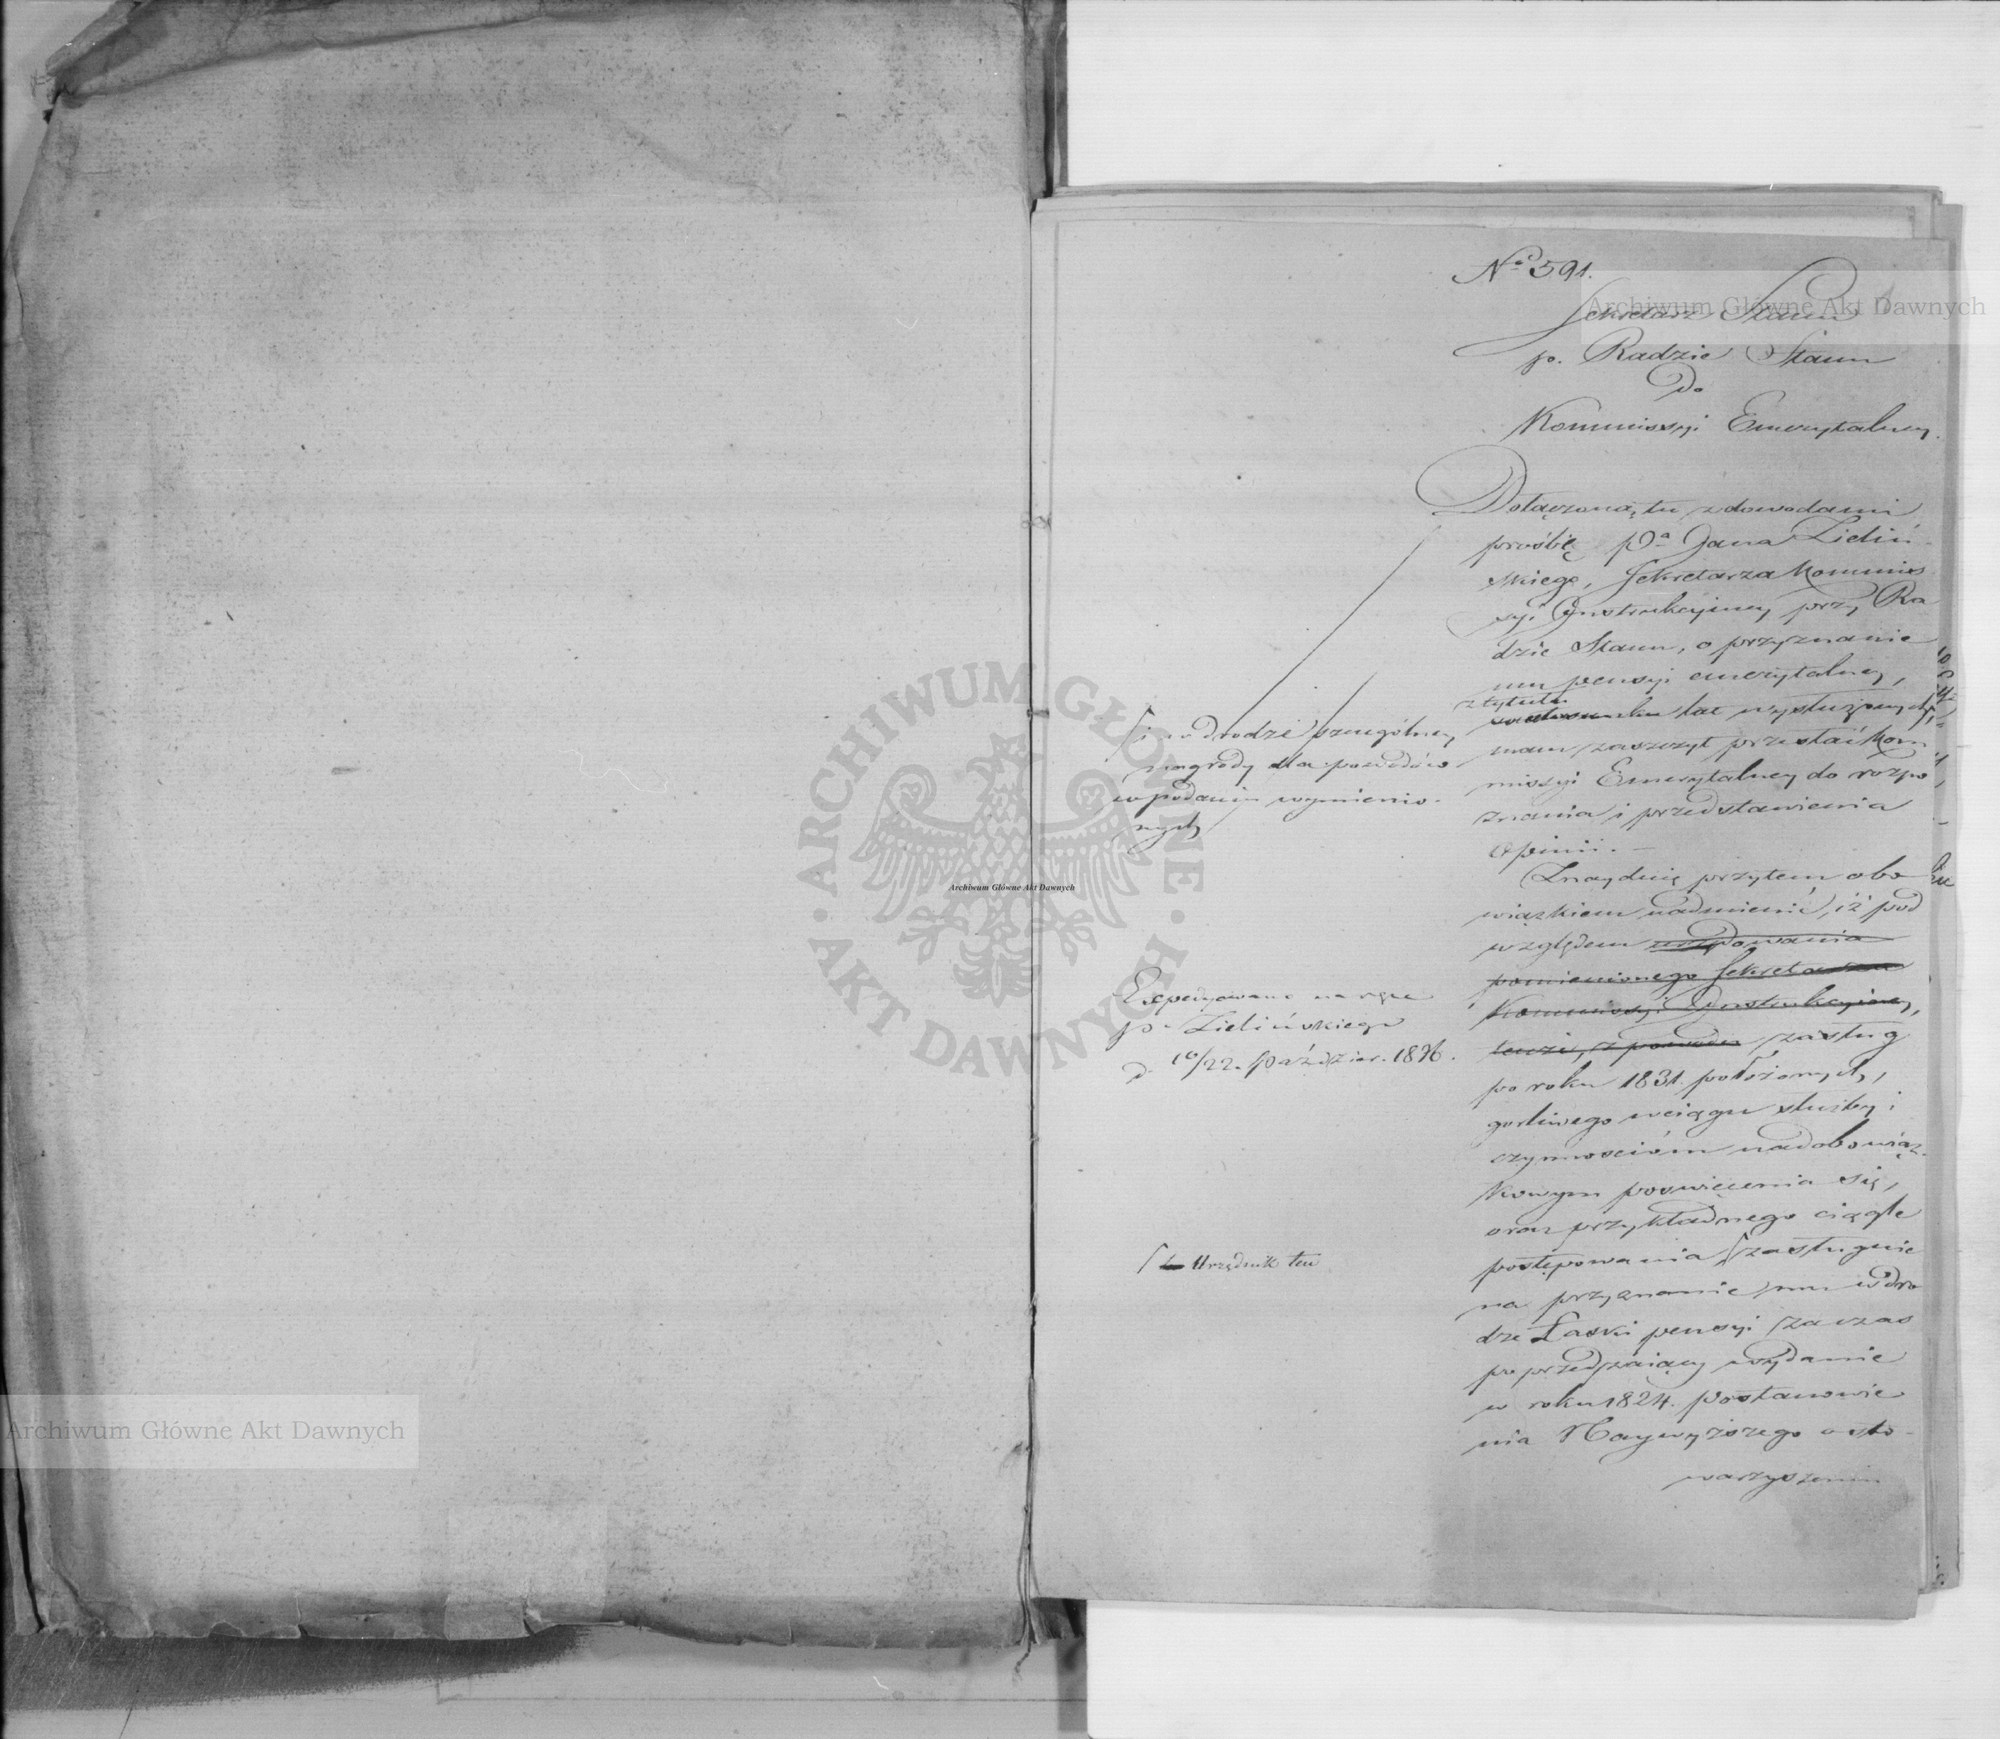 Nº 591.
Sekretarz Stanu
p. Radzie Stanu
Do
Kommissyi Emerytalney.
Dołączoną tu z dowodami
prośbę Pª Jana Zieliń-
skiego, Sekretarza Kommis
syi Instrukcyiney przy Ra
dzie Stanu, o przyznanie
mu pensyi emerytalney,
z tytułu
lat wysłużonych,
mam zaszczyt przesłać Kom
missyi Emerytalney do rozpo
znania i przedstawienia
opinii. —
Znayduię przytem obo
wiązkiem nadmienić, iż pod
względem urzędowania
pomienionego Sekretarza
Kommissyi Instrukcyiney,
tudzież, z powodu zasług
po roku 1831. położonych,
gorliwego w ciągu służby i
czynnościom nadobowiąz-
kowym poświęcenia się,
oraz przykładnego ciągle
postępowania zasługuie
na przyznanie mu w dro
dze Łaski pensyi za czas
poprzedzaiący wydanie
w roku 1824. postanowie
nia Naywyższego o sto-
warzyszeniu
i w drodze szczególney
nagrody dla powodów
w podaniu wymienio-
nych
Expedyowano na ręce
p. Zielińskiego
d. 10/22. Paździer. 1836.
Urzędnik ten
ARCHIWUM GŁÓWNE AKT DAWNYCH
Archiwum Główne Akt Dawnych
Archiwum Główne Akt Dawnych
Archiwum Główne Akt Dawnych